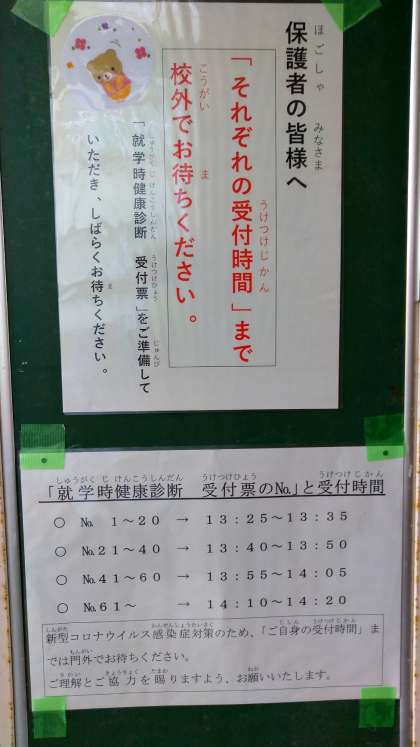 保護者の皆様へ
「それぞれの受付時間」まで
校外でお待ちください。
「就学時健康診断　受付票」をご準備して
いただき、しばらくお待ちください。
「就学時健康診断　受付票の№」と受付時間
○　№　1～20　→　13：25～13：35
○　№21～40　→　13：40～13：50
○　№41～60　→　13：55～14：05
○　№61～　　→　14：10～14：20
新型コロナウイルス感染症対策のため、「ご自身の受付時間」ま
では門外でお待ちください。
ご理解とご協力を賜りますよう、お願いいたします。